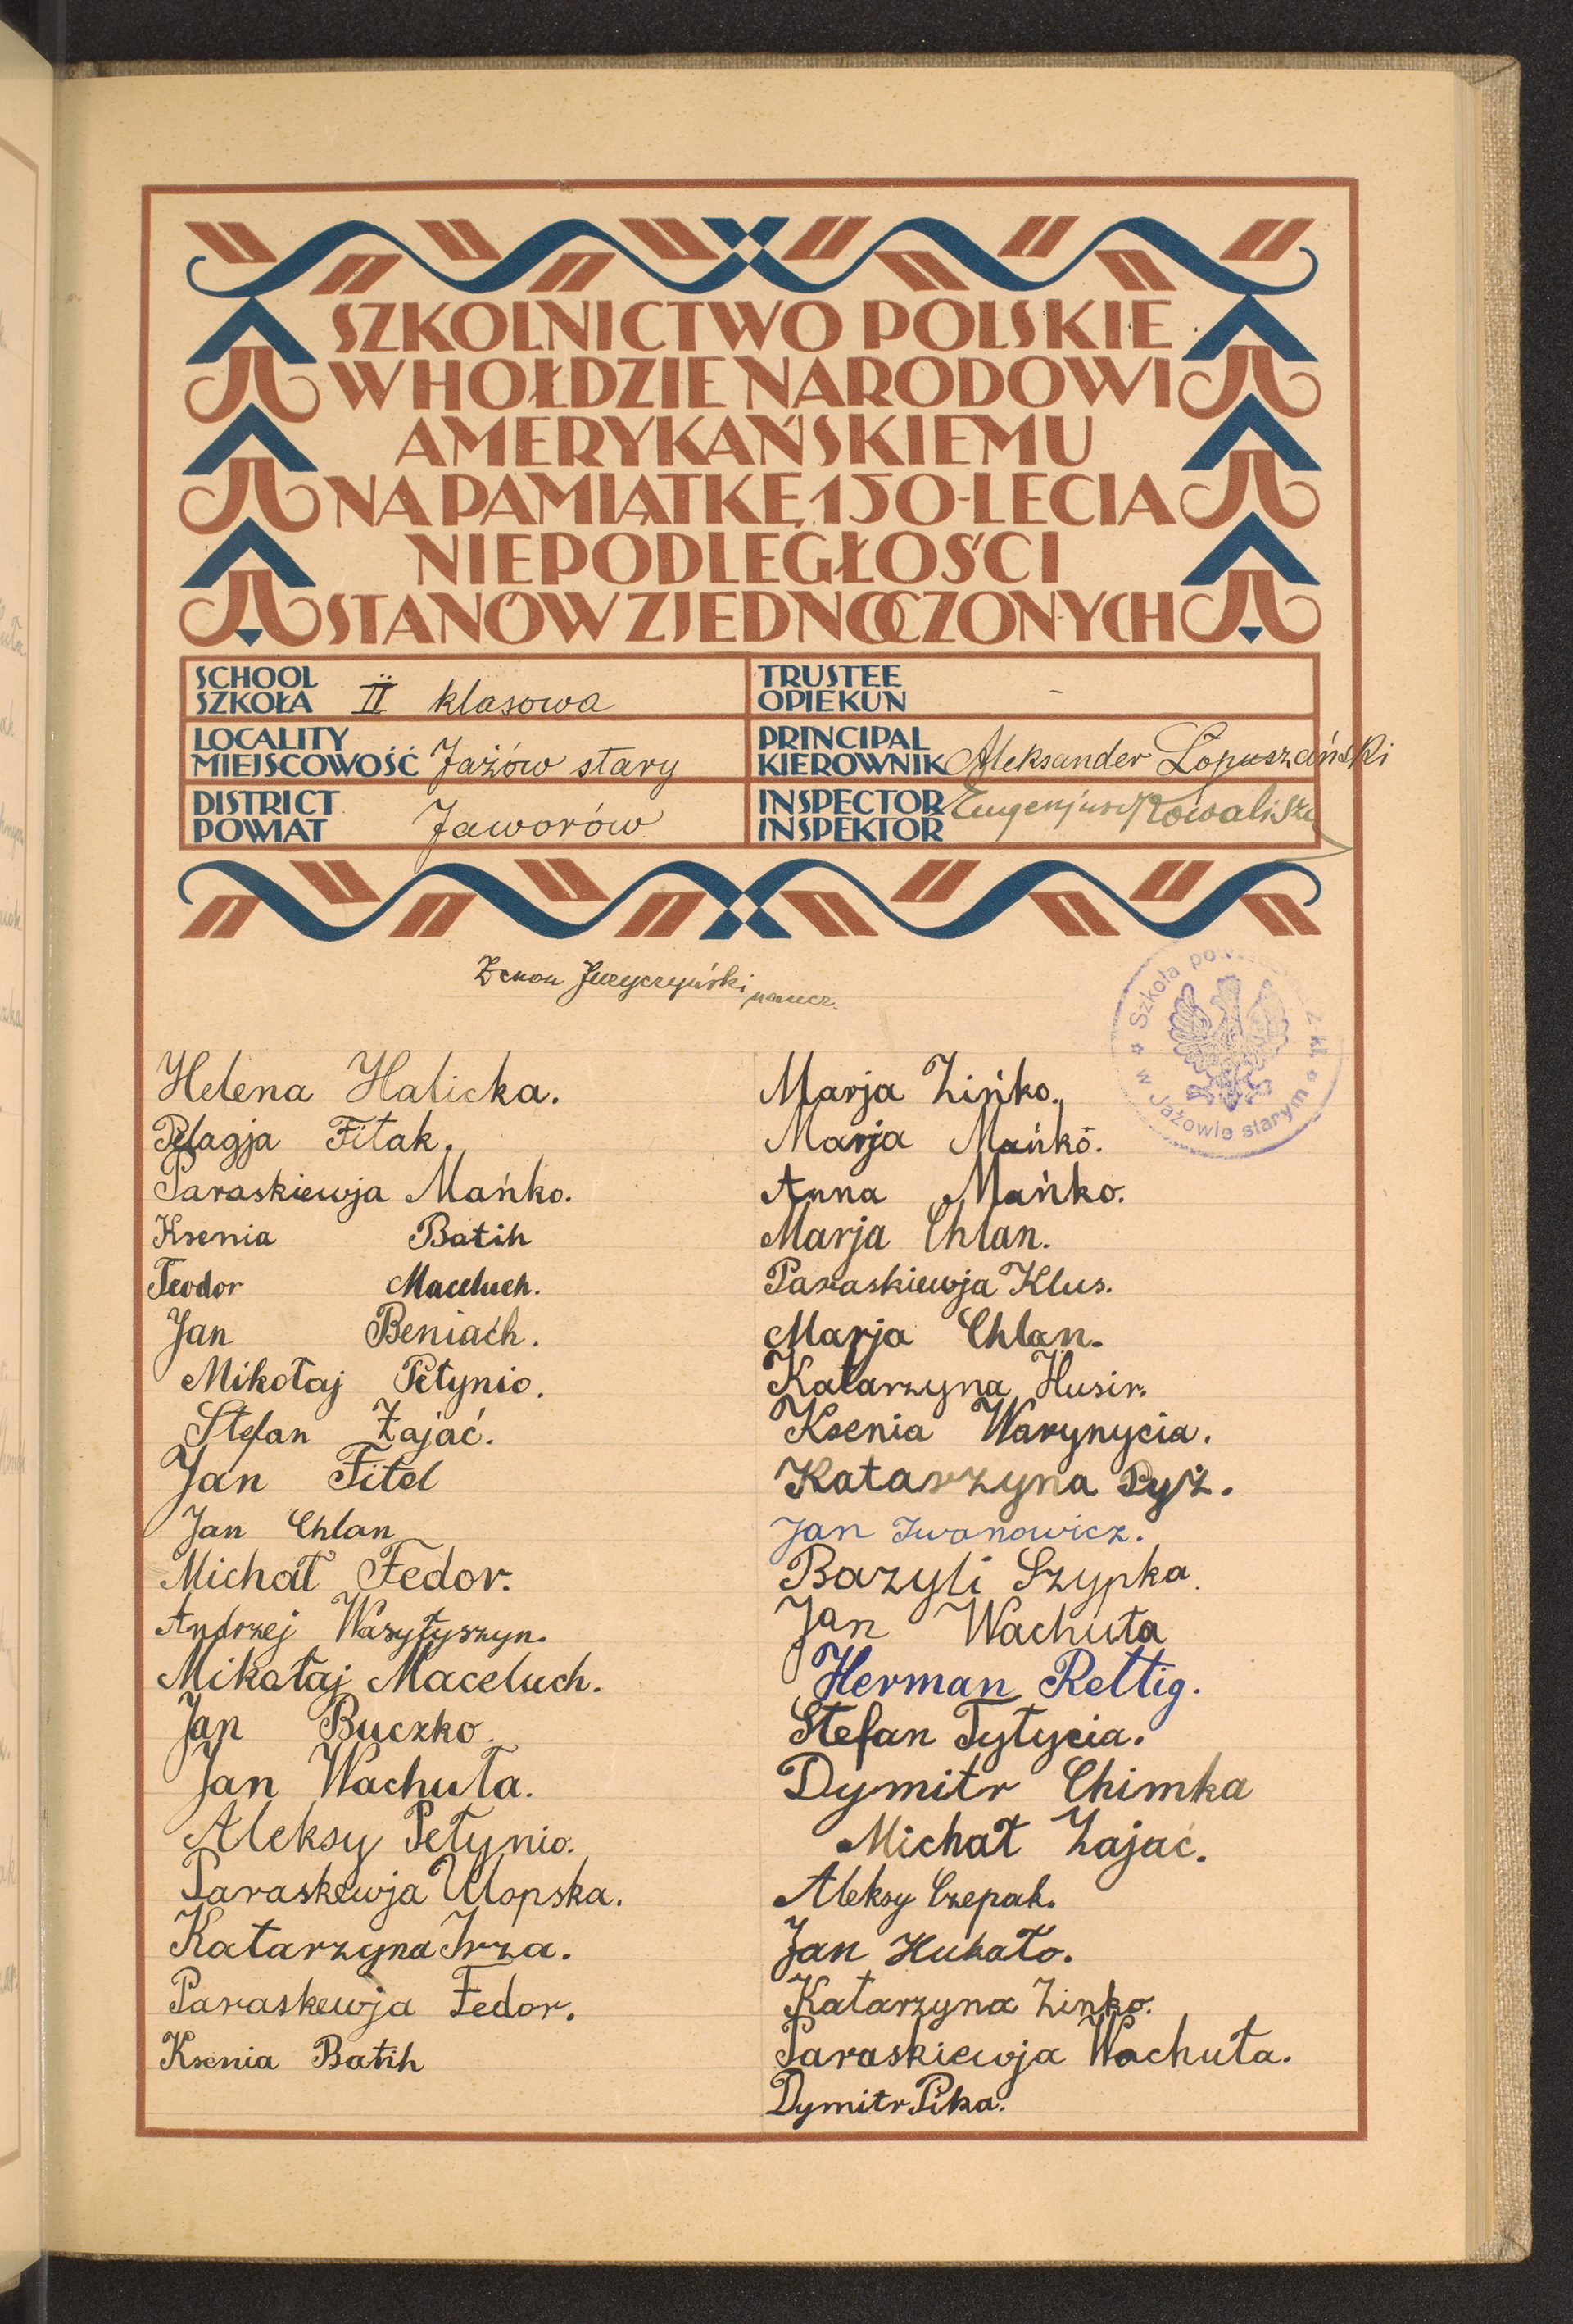 SZKOLNICTWO POLSKIE
W HOŁDZIE NARODOWI
AMERYKAŃSKIEMU
NA PAMIĄTKĘ 150-LECIA
NIEPODLEGŁOŚCI
STANÓW ZJEDNOCZONYCH
SCHOOL
SZKOŁA II klasowa
TRUSTEE
OPIEKUN -
LOCALITY
MIEJSCOWOŚĆ Jażów stary
PRINCIPAL
KIEROWNIK Aleksander Łopuszański
DISTRICT
POWIAT Jaworów
INSPECTOR
INSPEKTOR Eugenjusz
Zenon naucz.
Szkoła 2-kl. w Jażowie starym
Helena Halicka.
Pelagja Fitak.
Paraskiewja Mańko.
Ksenia Batih
Teodor Maceluch.
Jan Beniach.
Mikołaj Petynio.
Stefan Zajać.
Jan Fitel
Jan Chlan
Michał Fedor.
Andrzej Wasyłyszyn.
Mikołaj Maceluch.
Jan Buczko.
Jan Wachuła.
Aleksy Petynio.
Paraskewja Ulopska.
Katarzyna Irza.
Paraskewja Fedor.
Ksenia Batih
Marja Zińko.
Marja Mańko.
Anna Mańko.
Marja Chlan.
Paraskiewja Klus.
Marja Chlan.
Katarzyna Husir.
Ksenia Warynycia.
Katarzyna Pyż.
Jan Iwanowicz.
Bazyli Szypka.
Jan Wachuła
Herman Rettig.
Stefan Tytycia.
Dymitr Chimka
Michał Zajać.
Aleksy Czepak.
Jan Hukało.
Katarzyna Zinko.
Paraskiewja Wachuła.
Dymitr Pika.